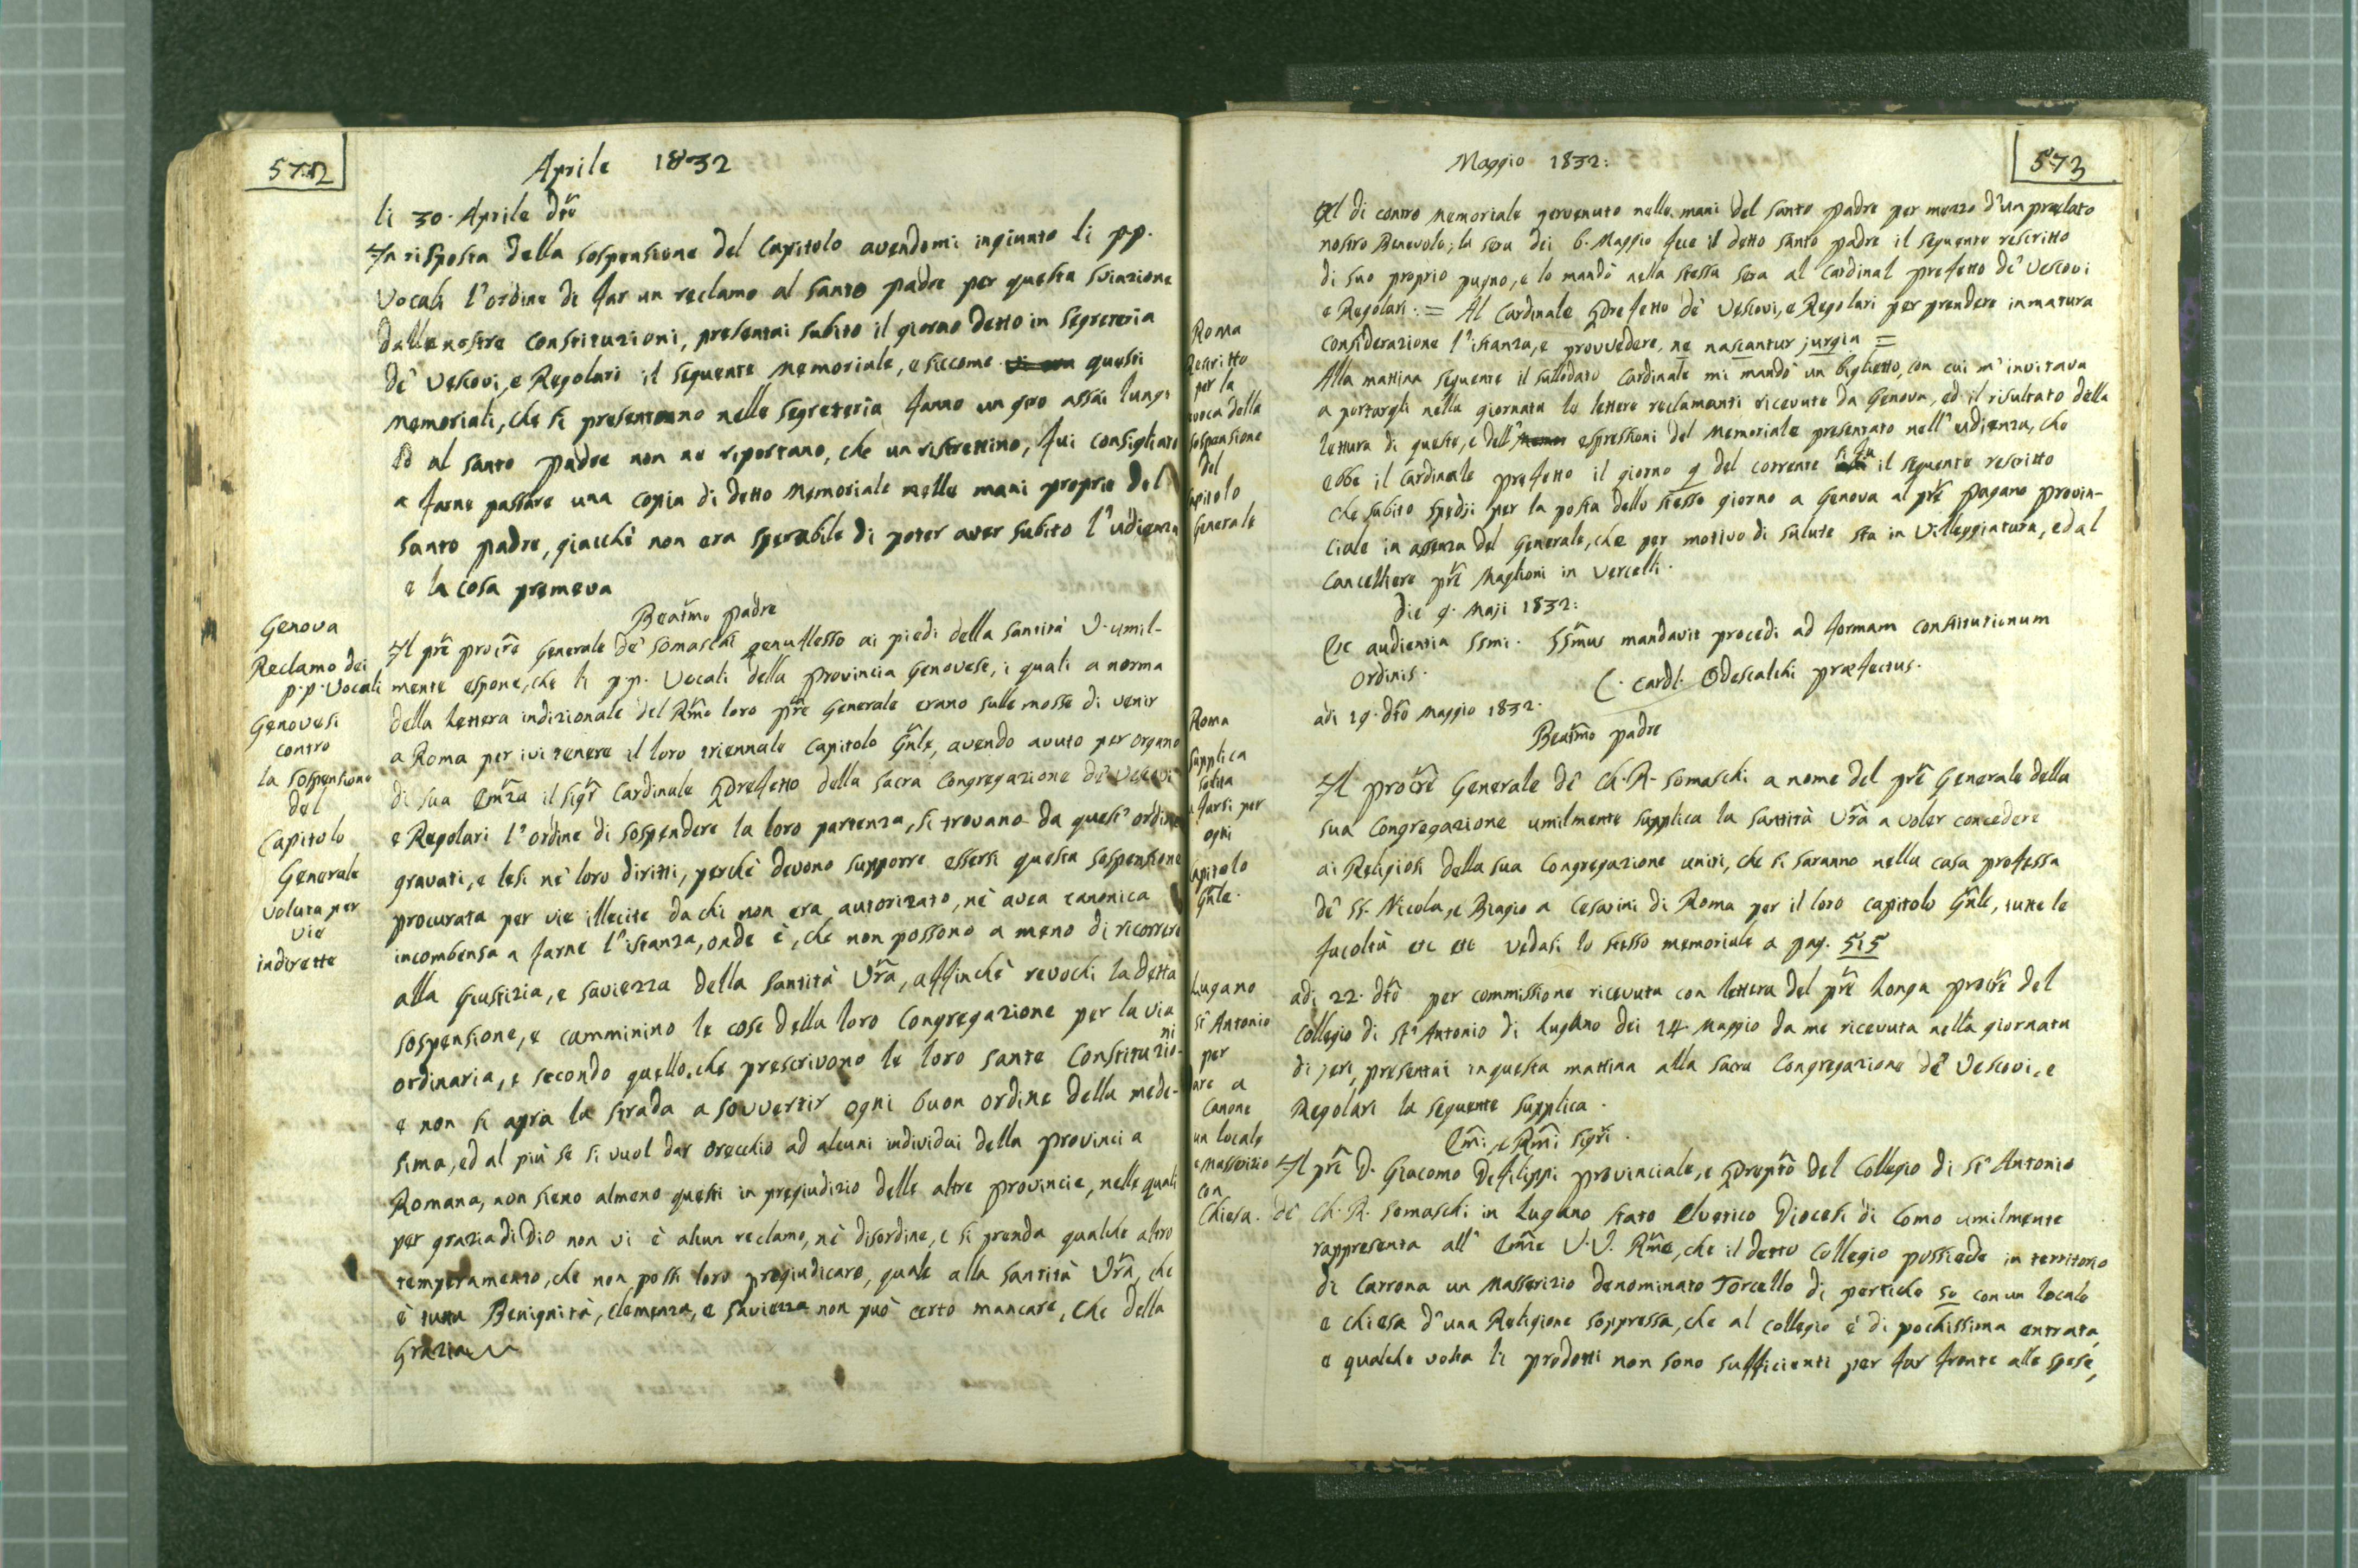 572
Aprile 1832
li 30. Aprile dto
In risposta della sospensione del Capitolo avendomi ingiunto li pp.
Vocali l'ordine di far un reclamo al santo padre per questa sviazione
dalle nostre constituzioni, presentai subito il giorno detto in segreteria
de' Vescovi, e Regolari il seguente memoriale, e siccome questi
memoriali, che si presentano nelle segreteria fanno un giro assai lungo
ed al santo padre non ne riportano, che un ristrettino, fui consigliato
a farne passare una copia di detto Memoriale nelle mani proprie del
santo padre, giacchè non era sperabile di poter aver subito l'udienza
e la cosa premeva
Genova
Reclamo dei
p.p. Vocali
Genovesi
contro
la sospensione
del
Capitolo
Generale
voluta per
vie
indirette
Beatmo padre
Il pre procre Generale de' Somaschi genuflesso ai piedi della santità V. umil-
mente espone, che li p.p. Vocali della provincia Genovese, i quali a norma
della lettera indizionale del Rmo loro pre Generale erano sulle mosse di venir
a Roma per ivi tenere il loro triennale Capitolo Gnle, avendo avuto per organo
di sua Emza il sigr Cardinale Prefetto della sacra Congregazione de' Vescovi
e Regolari l'ordine di sospendere la loro partenza, si trovano da quest'ordine
gravati, e lesi ne' loro diritti, perchè devono supporre essersi questa sospensione
procurata per vie illecite da chi non era autorizato, nè avea canonica
incombensa a farne l'istanza, onde è, che non possono a meno di ricorrere
alla Giustizia, e saviezza della santità Vra, affinchè revochi la detta
sospensione, e camminino le cose della loro Congregazione per la via
ordinaria, e secondo quello, che prescrivono le loro sante Constituzioni
e non si apra la strada a sovvertir ogni buon ordine della mede-
sima, ed al più se si vuol dar orecchio ad alcuni individui della provincia
Romana, non sieno almeno questi in pregiudizio delle altre provincie, nelle quali
per grazia di Dio non vi è alcun reclamo, nè disordine, e si prenda qualche altro
temperamento, che non possi loro pregiudicare, quale alla santità Vra, che
è tutta Benignità, clemenza, e saviezza non può certo mancare, che della
Grazia
Maggio 1832:
573
Roma
Rescritto
per la
voca della
sospensione
del
apitolo
Generale
Il di contro memoriale pervenuto nelle mani del santo padre per mezzo d'un prelato
nostro Benevolo; la sera dei 6. Maggio fece il detto santo padre il seguente rescritto
di suo proprio pugno, e lo mandò nella stessa sera al Cardinal prefetto de' Vescovi
e Regolari: = Al Cardinale Prefetto de' Vescovi, e Regolari per prendere in matura
considerazione l'istanza, e provvedere, ne nascantur jurgia =
Alla mattina seguente il sullodato Cardinale mi mandò un biglietto, con cui m'invitava
a portargli nella giornata le lettere reclamanti ricevute da Genova, ed il risultato della
lettura di queste, e dell' espressioni del Memoriale presentato nell'udienza, che
ebbe il Cardinale prefetto il giorno 9 del corrente si fu il seguente rescritto
che subito spedji per la posta dello stesso giorno a Genova al pre pagano provin-
ciale in assenza del Generale, che per motivo di salute sta in Villeggiatura, ed al
Cancelliere pre Maglioni in Vercelli.
die 9. Maji 1832:
Ex audientia SSmi. SSmus mandavit procedi ad formam constitutionum
Ordinis.
C. Cardl. Odescalchi præfectus.
Roma
Supplica
solita
a farsi per
ogni
apitolo
Gnle.
adi 19. dto Maggio 1832.
Beatmo padre
Il procre Generale de' Ch. R. Somaschi a nome del pre Generale della
sua Congregazione umilmente supplica la santità Vra a voler concedere
ai Religiosi della sua Congregazione uniti, che si saranno nella casa professa
de' SS. Nicola, e Biagio a Cesarini di Roma per il loro capitolo Gnle, tutte le
facoltà etc etc vedasi lo stesso memoriale a pag. 515
Lugano
St Antonio
per
are a
Canone
un locale
e Masserizio
con
Chiesa.
adi 22. dto per commissione ricevuta con lettera del pre Longa procre del
Collegio di St Antonio di Lugano dei 14. Maggio da me ricevuta nella giornata
di jeri, presentai in questa mattina alla sacra Congregazione de' Vescovi, e
Regolari la seguente supplica.
Emi, e Rmi sigri.
Il pre D. Giacomo Defilippi provinciale, e Prepto del Collegio di St Antonio
de' Ch. R. Somaschi in Lugano stato Elvetico Diocesi di Como umilmente
rappresenta all' Emze V.V. Rme, che il detto Collegio possiede in territorio
di Carrona un Masserizio denominato Torcello di pertiche 50 con un locale
e chiesa d'una Religione soppressa, che al collegio è di pochissima entrata,
e qualche volta li prodotti non sono sufficienti per far fronte alle spese,